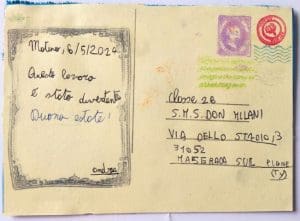 Molino, 6/5/2024
Questo lavoro
è stato divertente
Buona estate!
Classe 2B
S.M.S. DON MILANI
VIA DELLO STADIO, 3
31052
MASERADA SUL PIAVE
(TV)